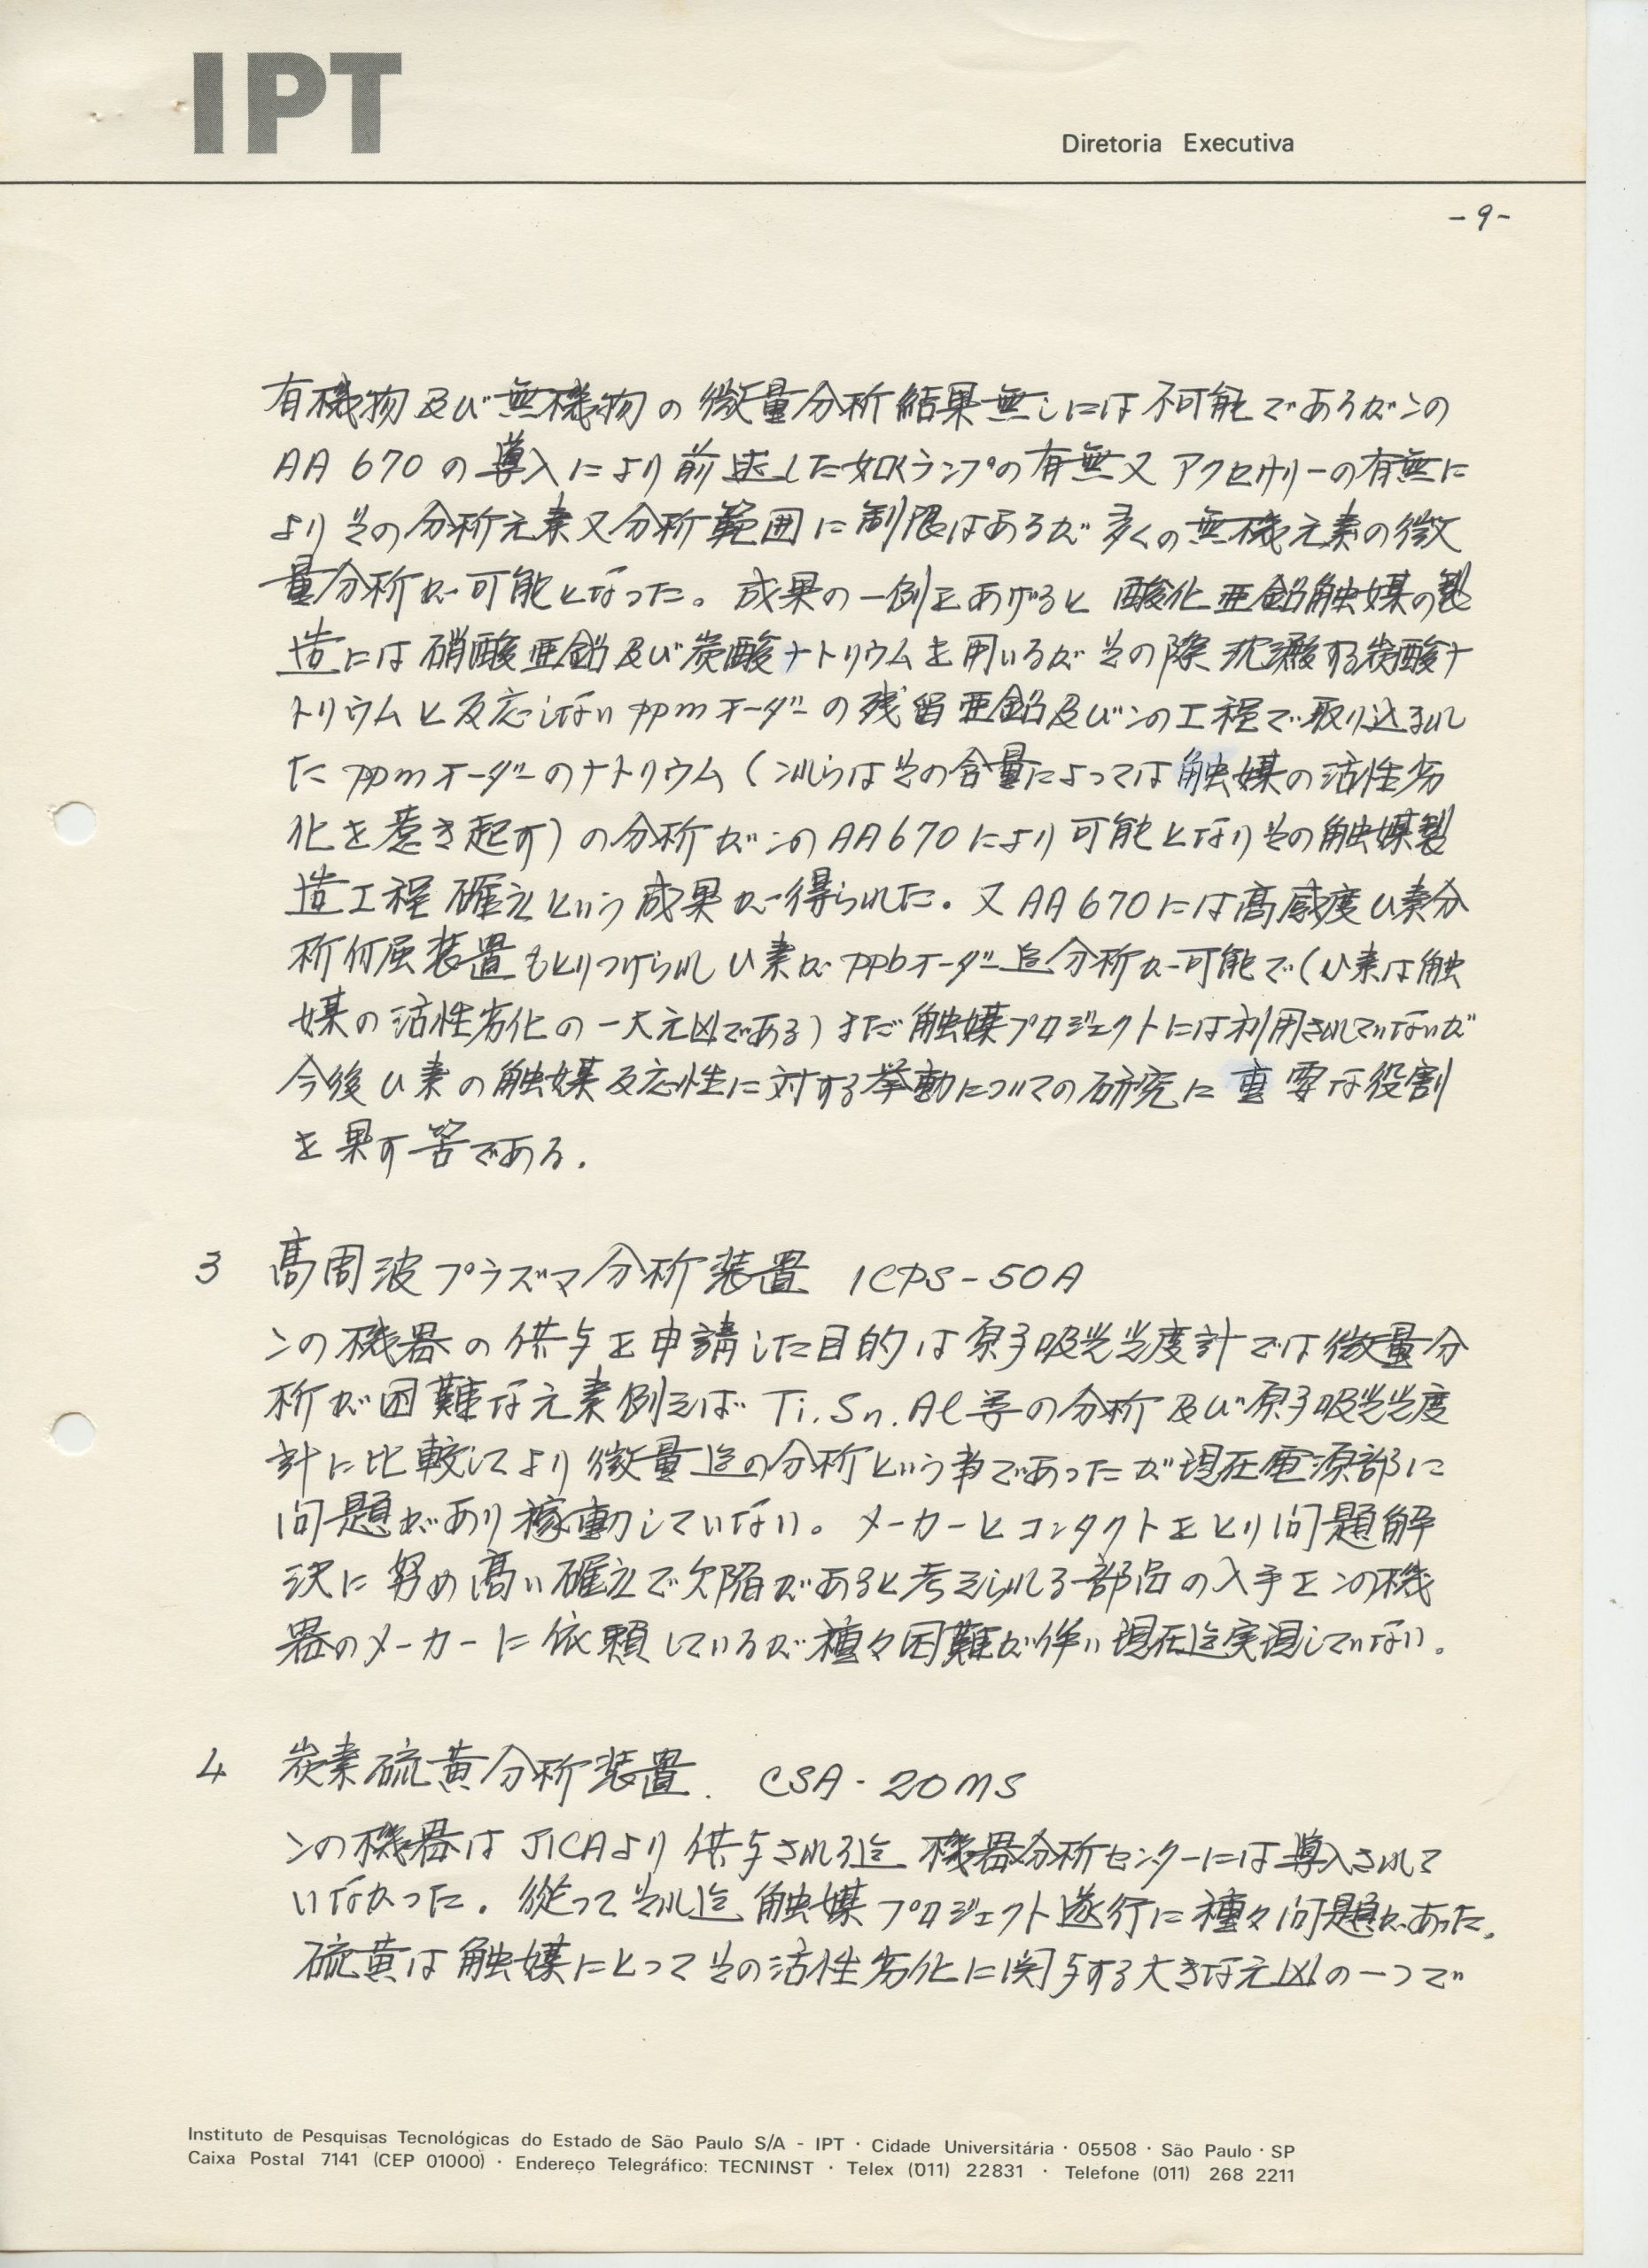 IPT
Diretoria Executiva
-9-
有機物及び無機物の微量分析結果無しには不可能であるがこの
AA 670の導入により前述した如くランプの有無又アクセサリーの有無に
よりその分析元素又分析範囲に制限はあるが多くの無機元素の微
量分析が可能となった。成果の一例をあげると酸化亜鉛触媒の製
造には硝酸亜鉛及び炭酸ナトリウムを用いるがその際沈澱する炭酸ナ
トリウムと反応しないppmオーダーの残留亜鉛及びこの工程で取り込まれ
たppmオーダーのナトリウム(これらはその含量によっては触媒の活性劣
化を惹き起す)の分析がこのAA670により可能となりその触媒製
造工程確立という成果が得られた。又AA670には高感度ひ素分
析付属装置もとりつけられひ素がppbオーダー迄分析が可能で(ひ素は触
媒の活性劣化の一大元凶である)まだ触媒プロジェクトには利用されていないが
今後ひ素の触媒反応性に対する挙動についての研究に重要な役割
を果す筈である.
3 高周波プラズマ分析装置 ICPS-50A
この機器の供与を申請した目的は原子吸光光度計では微量分
析が困難な元素例えば Ti. Sn. Al等の分析及び原子吸光光度
計に比較してより微量迄の分析という事であったが現在電源部に
問題があり稼動していない。メーカーとコンタクトをとり問題解
決に努め高い確立で欠陥があると考えられる部品の入手をこの機
器のメーカーに依頼しているが種々困難が伴い現在迄実現していない.
4 炭素硫黄分析装置. CSA-20MS
この機器はJICAより供与される迄機器分析センターには導入されて
いなかった. 従ってそれ迄触媒プロジェクト遂行に種々問題があった.
硫黄は触媒にとってその活性劣化に関与する大きな元凶の一つで
Instituto de Pesquisas Tecnológicas do Estado de São Paulo S/A - IPT · Cidade Universitária · 05508 · São Paulo · SP
Caixa Postal 7141 (CEP 01000) · Endereço Telegráfico: TECNINST · Telex (011) 22831 · Telefone (011) 268 2211